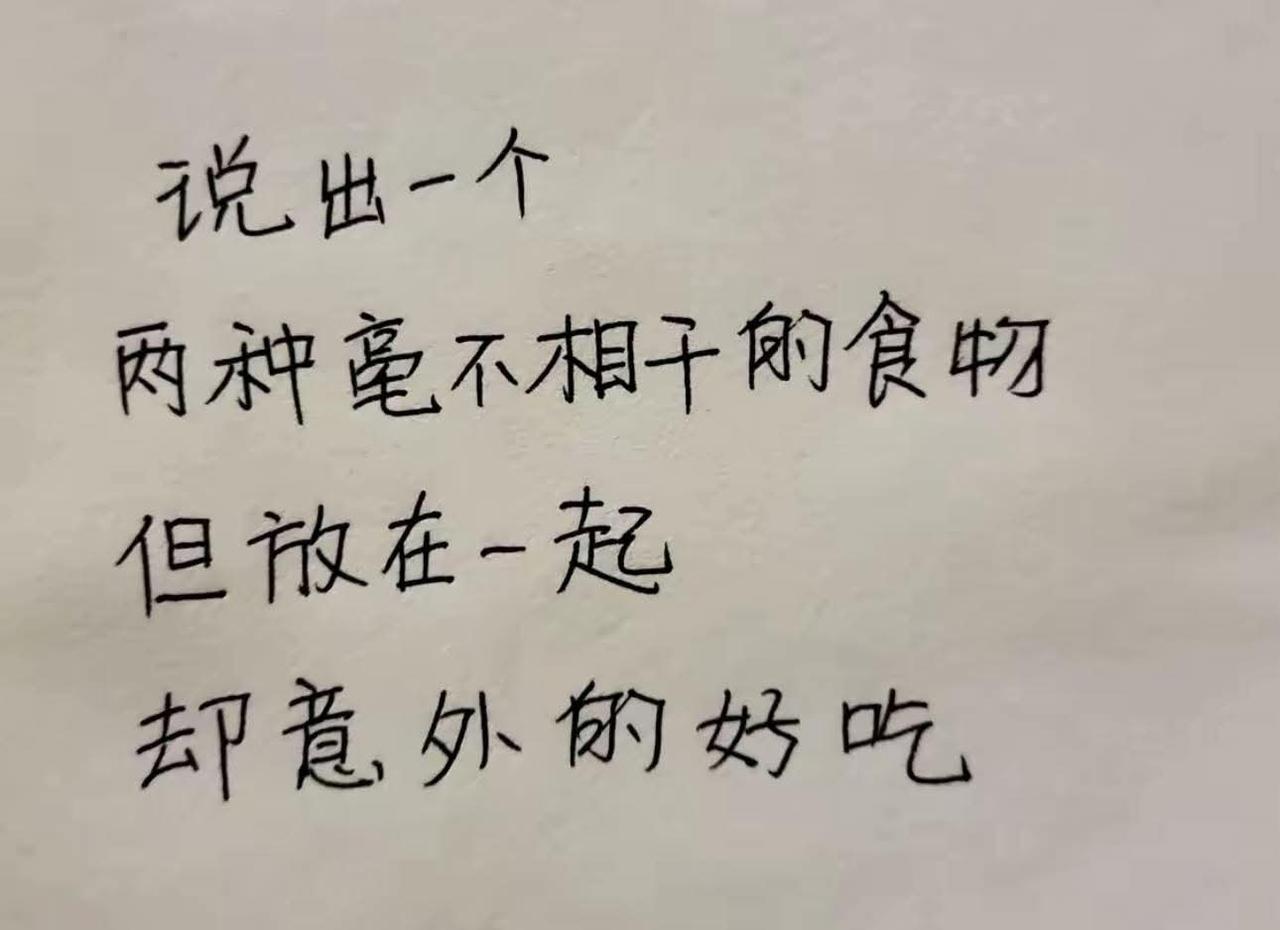 说出一个
两种毫不相干的食物
但放在一起
却意外的好吃